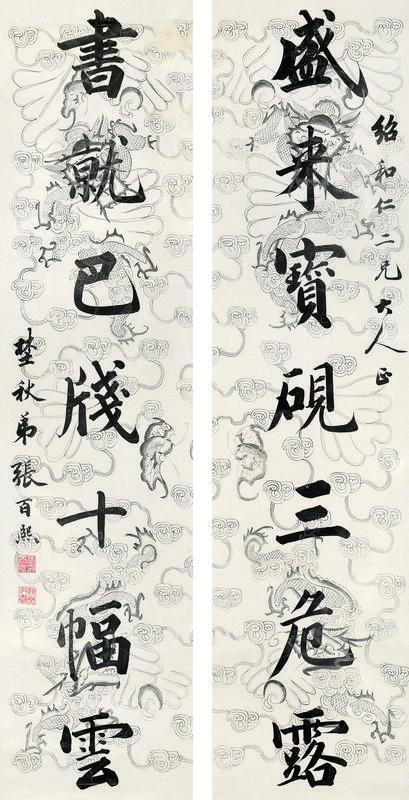 紹和仁二兄大人正
盛来寶硯三危露
書就巴牋十幅雲
埜秋弟張百熙